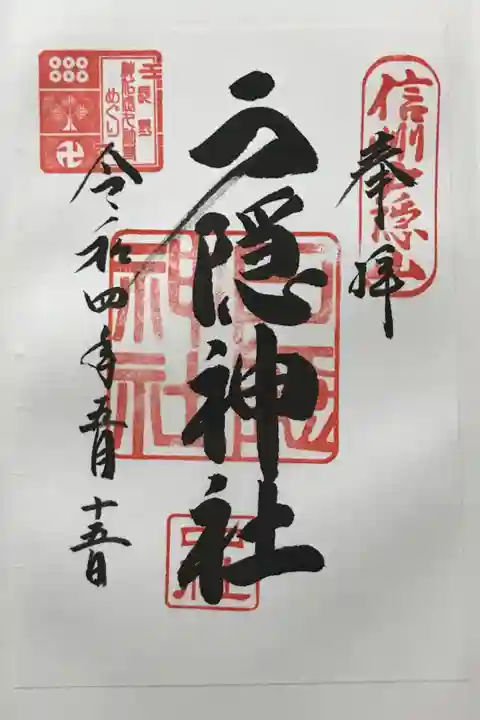 奉拝
信州戸隠山
戸隠神社
戸隠神社
中社
令和四年五月十五日
めぐり